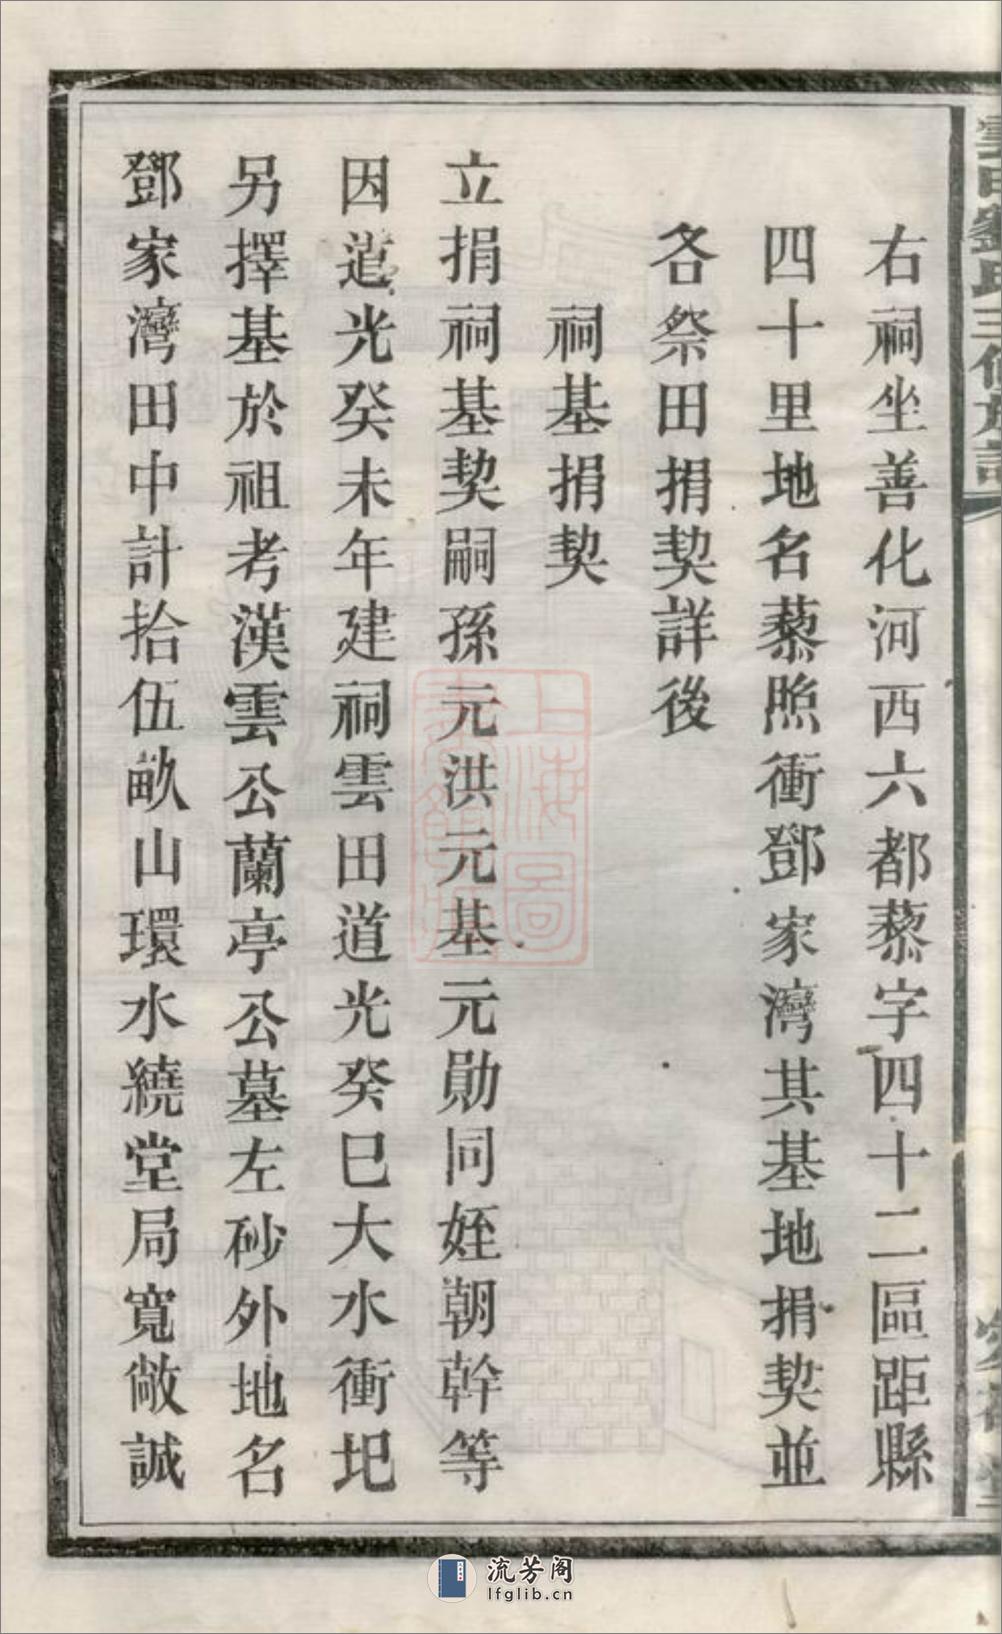 右祠坐善化河西六都藜字四十二區距縣
四十里地名藜照衝鄧家灣其基地捐契並
各祭田捐契詳後
祠基捐契
立捐祠基契嗣孫元洪元基元勛同姪朝幹等
因道光癸未年建祠雲田道光癸巳大水衝圯
另擇基於祖考漢雲公蘭亭公墓左砂外地名
鄧家灣田中計拾伍畝山環水繞堂局寬敞誠
上海圖
流芳阁
lfglib.cn